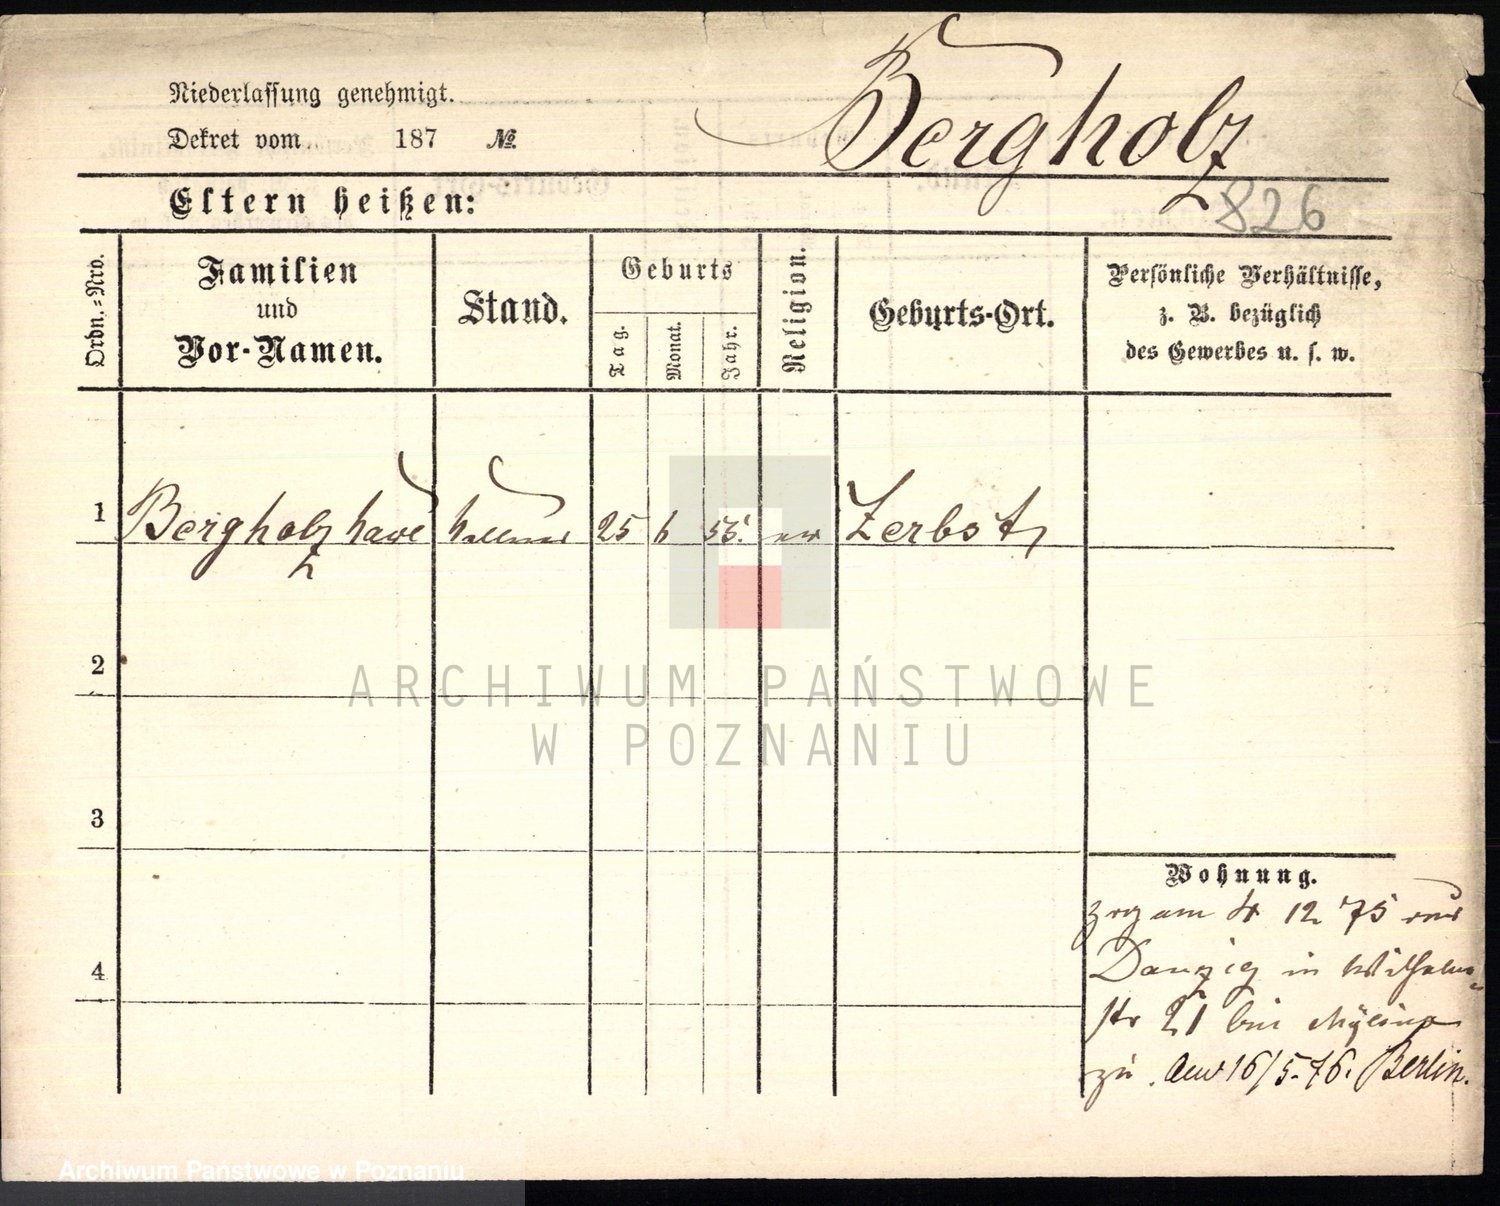 Niederlassung genehmigt.
Dekret vom 187 №
Bergholz
Eltern heißen:
826
Ordn.-Nro.
Familien
und
Vor-Namen.
Stand.
Geburts
Tag.
Monat.
Jahr.
Religion.
Geburts-Ort.
Persönliche Verhältnisse,
z. B. bezüglich
des Gewerbes u. s. w.
1 Bergholz 25 6 55. ev Zerbst
2
ARCHIWUM PAŃSTWOWE
W POZNANIU
3
4
Wohnung.
zog am 4 12 75 aus
Danzig in Wilhelm-
str 21 bei Mylius
zu. 16/5.76. Berlin.
Archiwum Państwowe w Poznaniu